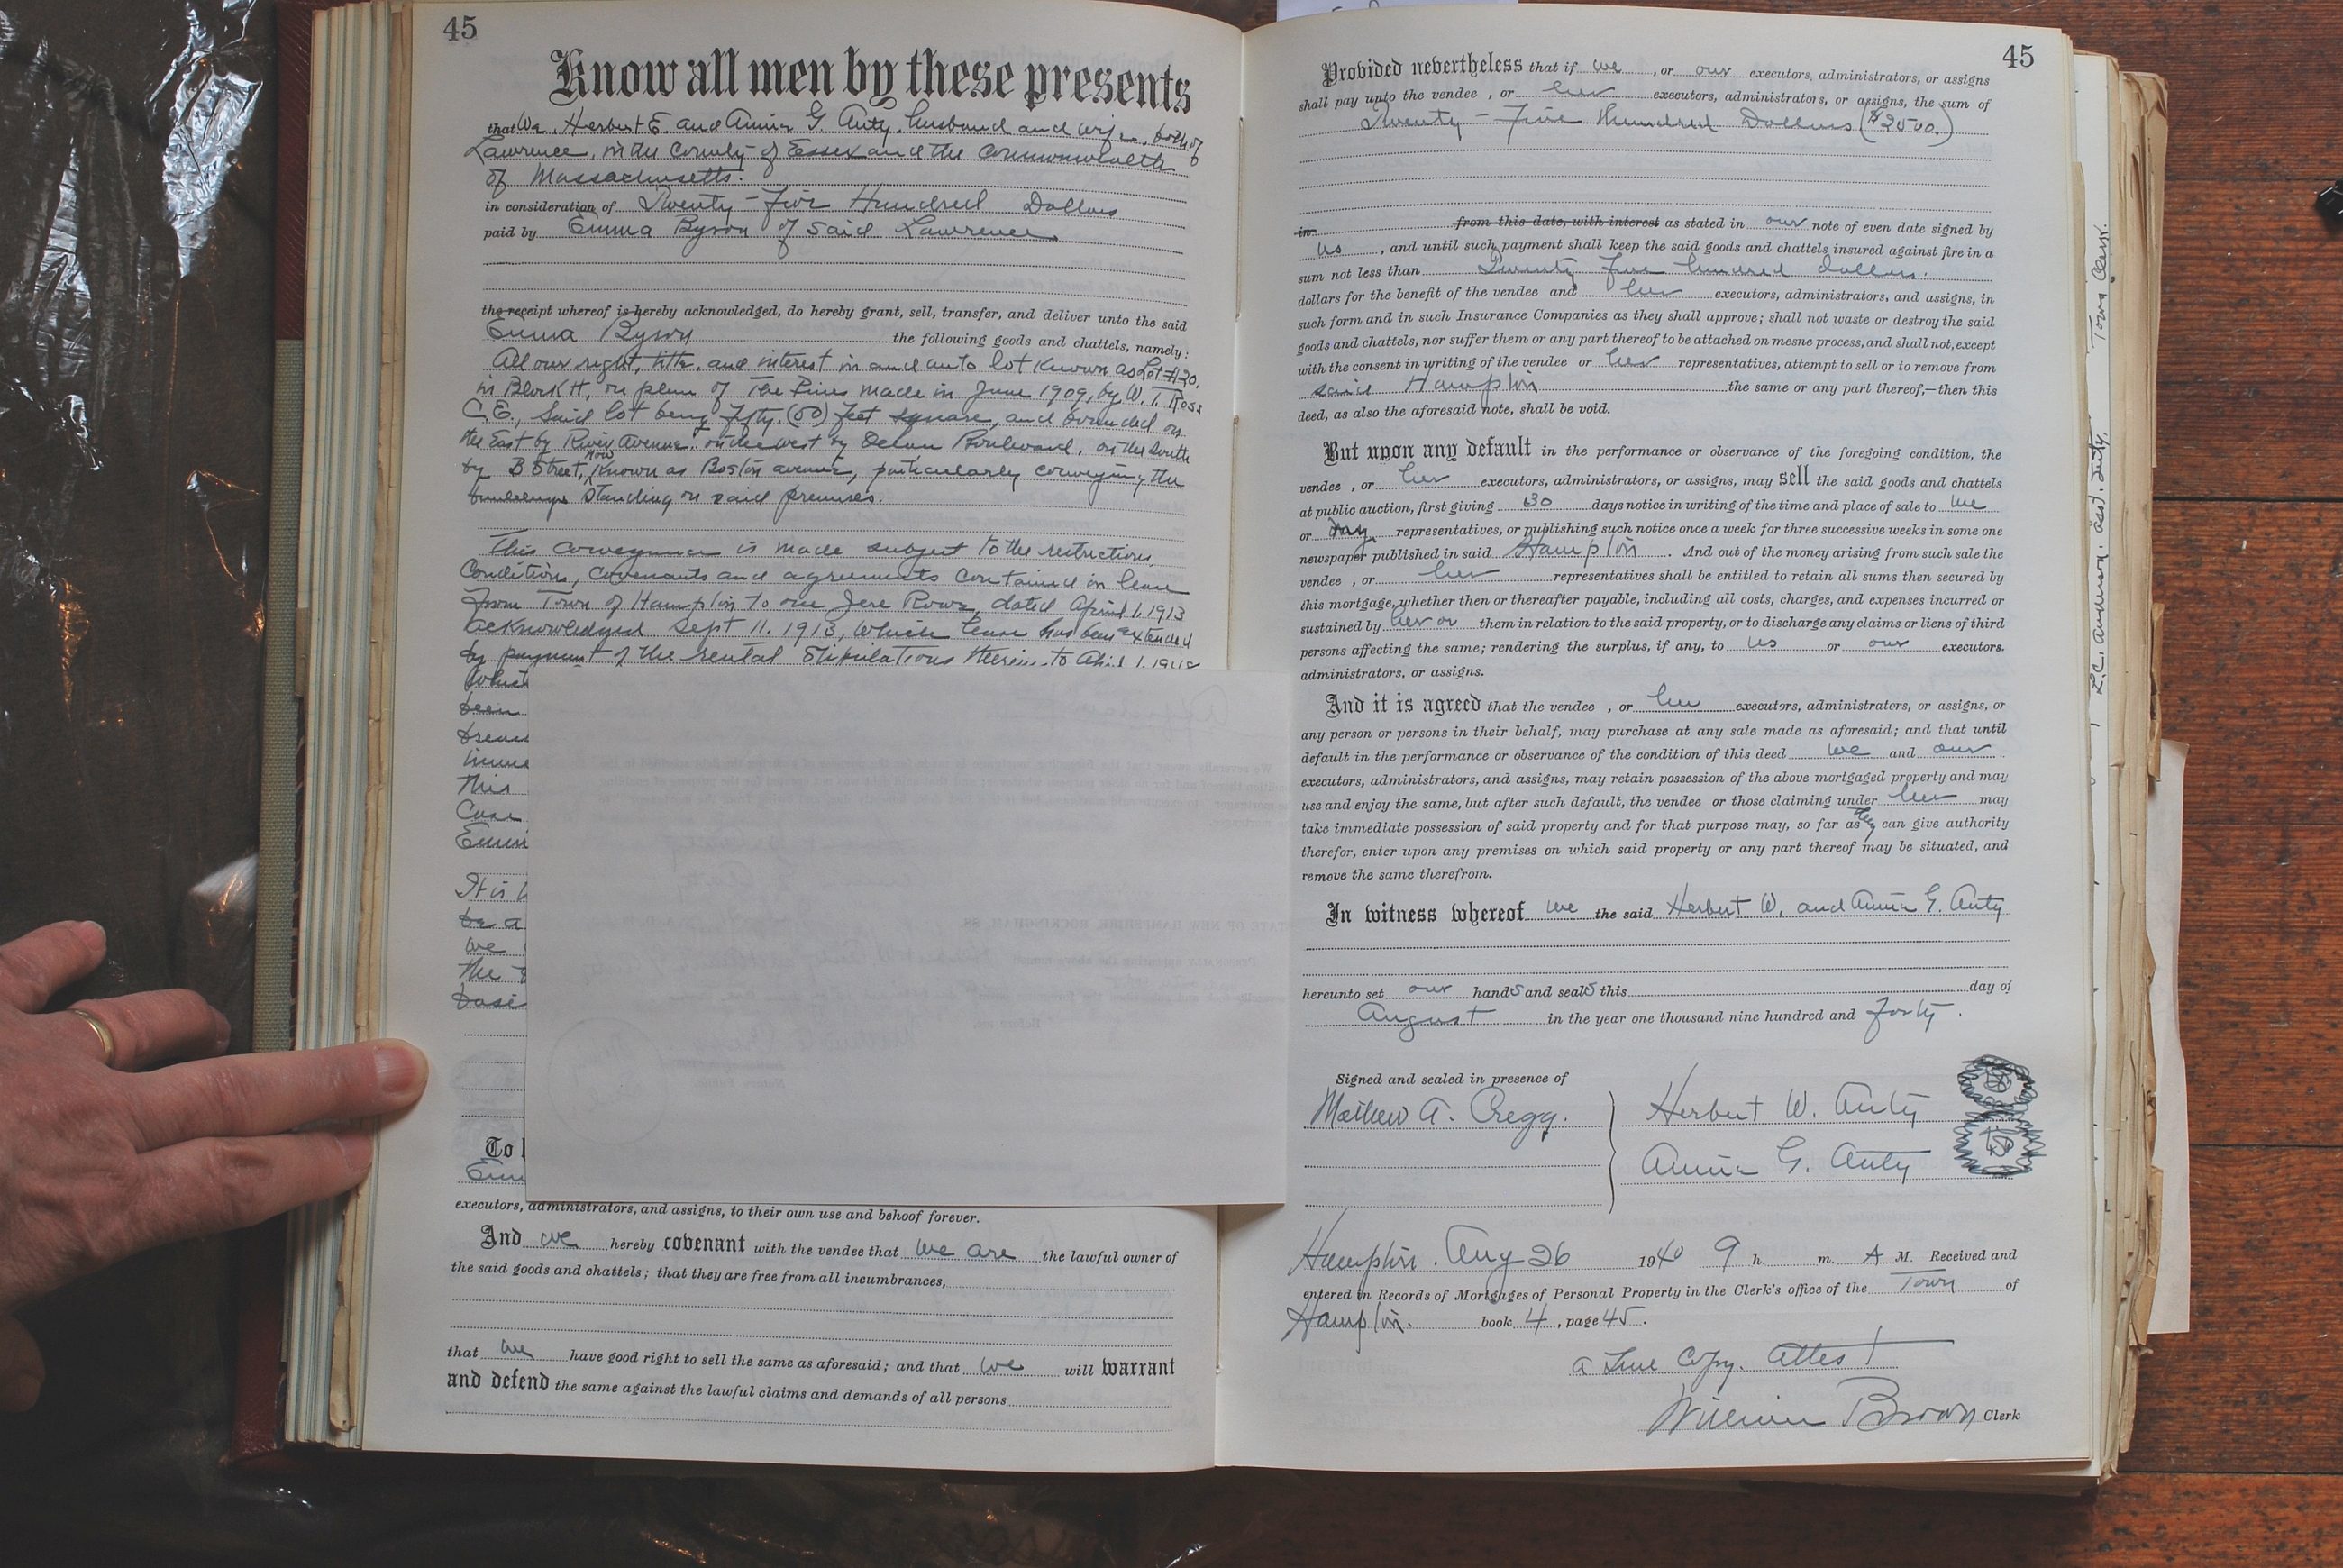 45
Know all men by these presents
that We, Herbert E. and Annie G. Auty, husband and wife, both of
Lawrence, in the County of Essex and the Commonwealth
of Massachusetts.
in consideration of Twenty-Five Hundred Dollars
paid by Emma Byson of said Lawrence
the receipt whereof is hereby acknowledged, do hereby grant, sell, transfer, and deliver unto the said
Emma Byson the following goods and chattels, namely:
All our right, title, and interest in and unto lot known as Lot #20.
in Block H, on plan of The Pines made in June 1909, by W. T. Ross
C.E., Said lot being fifty (50) feet square, and bounded on
the East by River Avenue, on the west by Ocean Boulevard, on the South
by B Street, now known as Boston avenue, particularly conveying the
buildings standing on said premises.
This conveyance is made subject to the restrictions,
conditions, covenants and agreements contained in lease
from Town of Hampton to one Jere Rowe, dated April 1, 1913
acknowledged Sept 11. 1913, which lease has been extended
by payment of the rental stipulations therein to
been
this
Case
It is
be a
we
the
To
executors, administrators, and assigns, to their own use and behoof forever.
And we hereby covenant with the vendee that we are the lawful owner of
the said goods and chattels; that they are free from all incumbrances,
that we have good right to sell the same as aforesaid; and that we will warrant
and defend the same against the lawful claims and demands of all persons
45
Provided nevertheless that if we , or our executors, administrators, or assigns
shall pay unto the vendee , or her executors, administrators, or assigns, the sum of
Twenty-Five Hundred Dollars ($2500.)
in from this date, with interest as stated in our note of even date signed by
us , and until such payment shall keep the said goods and chattels insured against fire in a
sum not less than Twenty five hundred dollars.
dollars for the benefit of the vendee and her executors, administrators, and assigns, in
such form and in such Insurance Companies as they shall approve; shall not waste or destroy the said
goods and chattels, nor suffer them or any part thereof to be attached on mesne process, and shall not, except
with the consent in writing of the vendee or her representatives, attempt to sell or to remove from
said Hampton the same or any part thereof,—then this
deed, as also the aforesaid note, shall be void.
But upon any default in the performance or observance of the foregoing condition, the
vendee , or her executors, administrators, or assigns, may sell the said goods and chattels
at public auction, first giving 30 days notice in writing of the time and place of sale to we
or representatives, or publishing such notice once a week for three successive weeks in some one
newspaper published in said Hampton . And out of the money arising from such sale the
vendee , or her representatives shall be entitled to retain all sums then secured by
this mortgage, whether then or thereafter payable, including all costs, charges, and expenses incurred or
sustained by her or them in relation to the said property, or to discharge any claims or liens of third
persons affecting the same; rendering the surplus, if any, to us or our executors.
administrators, or assigns.
And it is agreed that the vendee , or her executors, administrators, or assigns, or
any person or persons in their behalf, may purchase at any sale made as aforesaid; and that until
default in the performance or observance of the condition of this deed we and our
executors, administrators, and assigns, may retain possession of the above mortgaged property and may
use and enjoy the same, but after such default, the vendee or those claiming under her may
take immediate possession of said property and for that purpose may, so far as they can give authority
therefor, enter upon any premises on which said property or any part thereof may be situated, and
remove the same therefrom.
In witness whereof we the said Herbert W. and Annie G. Auty
hereunto set our hands and seals this day of
August in the year one thousand nine hundred and forty.
Signed and sealed in presence of
Mathew A. Cregg.
Herbert W. Auty
Annie G. Auty
Hampton. Aug 26 1940 9 h. m. A M. Received and
entered in Records of Mortgages of Personal Property in the Clerk's office of the Town of
Hampton. book 4 , page 45 .
a true Copy. Attest
William Brown Clerk
L.C. Anderson. asst. Duty. Town Clerk.